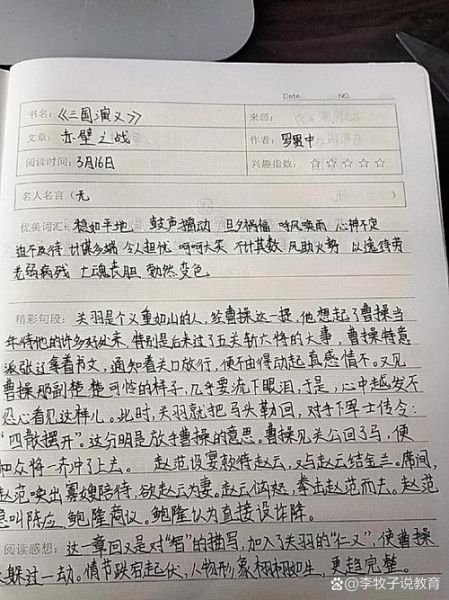 Date. NO.
书名:《三国演义》 来源:
文章: 赤壁之战 作者: 罗贯中
阅读时间: 3月16日 兴趣指数: ☆ ☆ ☆ ☆ ☆
名人名言(无 )
优美词汇: 稳如平地 鼓声擂动 旦夕祸福 呼风唤雨 心神不定
迫不及待 计谋多端 令人担忧 呵呵大笑 不计其数 风助火势 以逸待劳
老弱病残 亡魂丧胆 勃然变色
精彩句段: 关羽是个义重如山的人,经曹操这一提,他想起了曹操当
年待他的许多好处来,特别是后来过了五关斩六将的大事,曹操特意
派张辽拿着书文,通知着关口放行,便不由得动起真感情不。又见
曹操那副楚楚可怜的样子,几乎要流下眼泪,于是,心中越发不
忍心看见这样儿。此时,关羽就把马头勒回,对手下军士传令:
“四散摆开”。这分明是放了曹操的意思。曹操见关公回了马,便
和众将一齐冲了上去。 赵范设宴款待赵云,又与赵云结金兰。席间,
赵范唤出寡嫂陪侍,欲赵云为妻。赵云恼怒,拳击赵范而去。赵范
急叫陈应 鲍隆商议。鲍隆认为直接设诈降。
阅读感想: 这一章回又是对“智”的描写,加入了关羽的“仁义”,使曹操
又躲过一劫。情节跌宕起伏,人物形象栩栩如生,更趋完整。
百家号/李牧子说教育